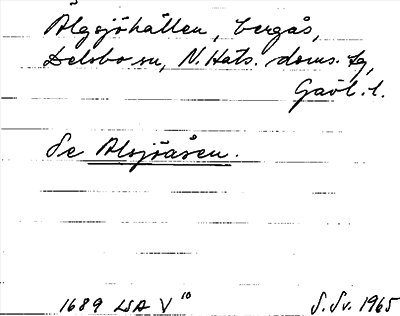 Älgsjöhällen, bergås,
Delsbo sn, N. Häls. doms. tg,
Gävl. l.
Se Alsjöåsen.
1689 LSA V 10 S. Sv. 1965